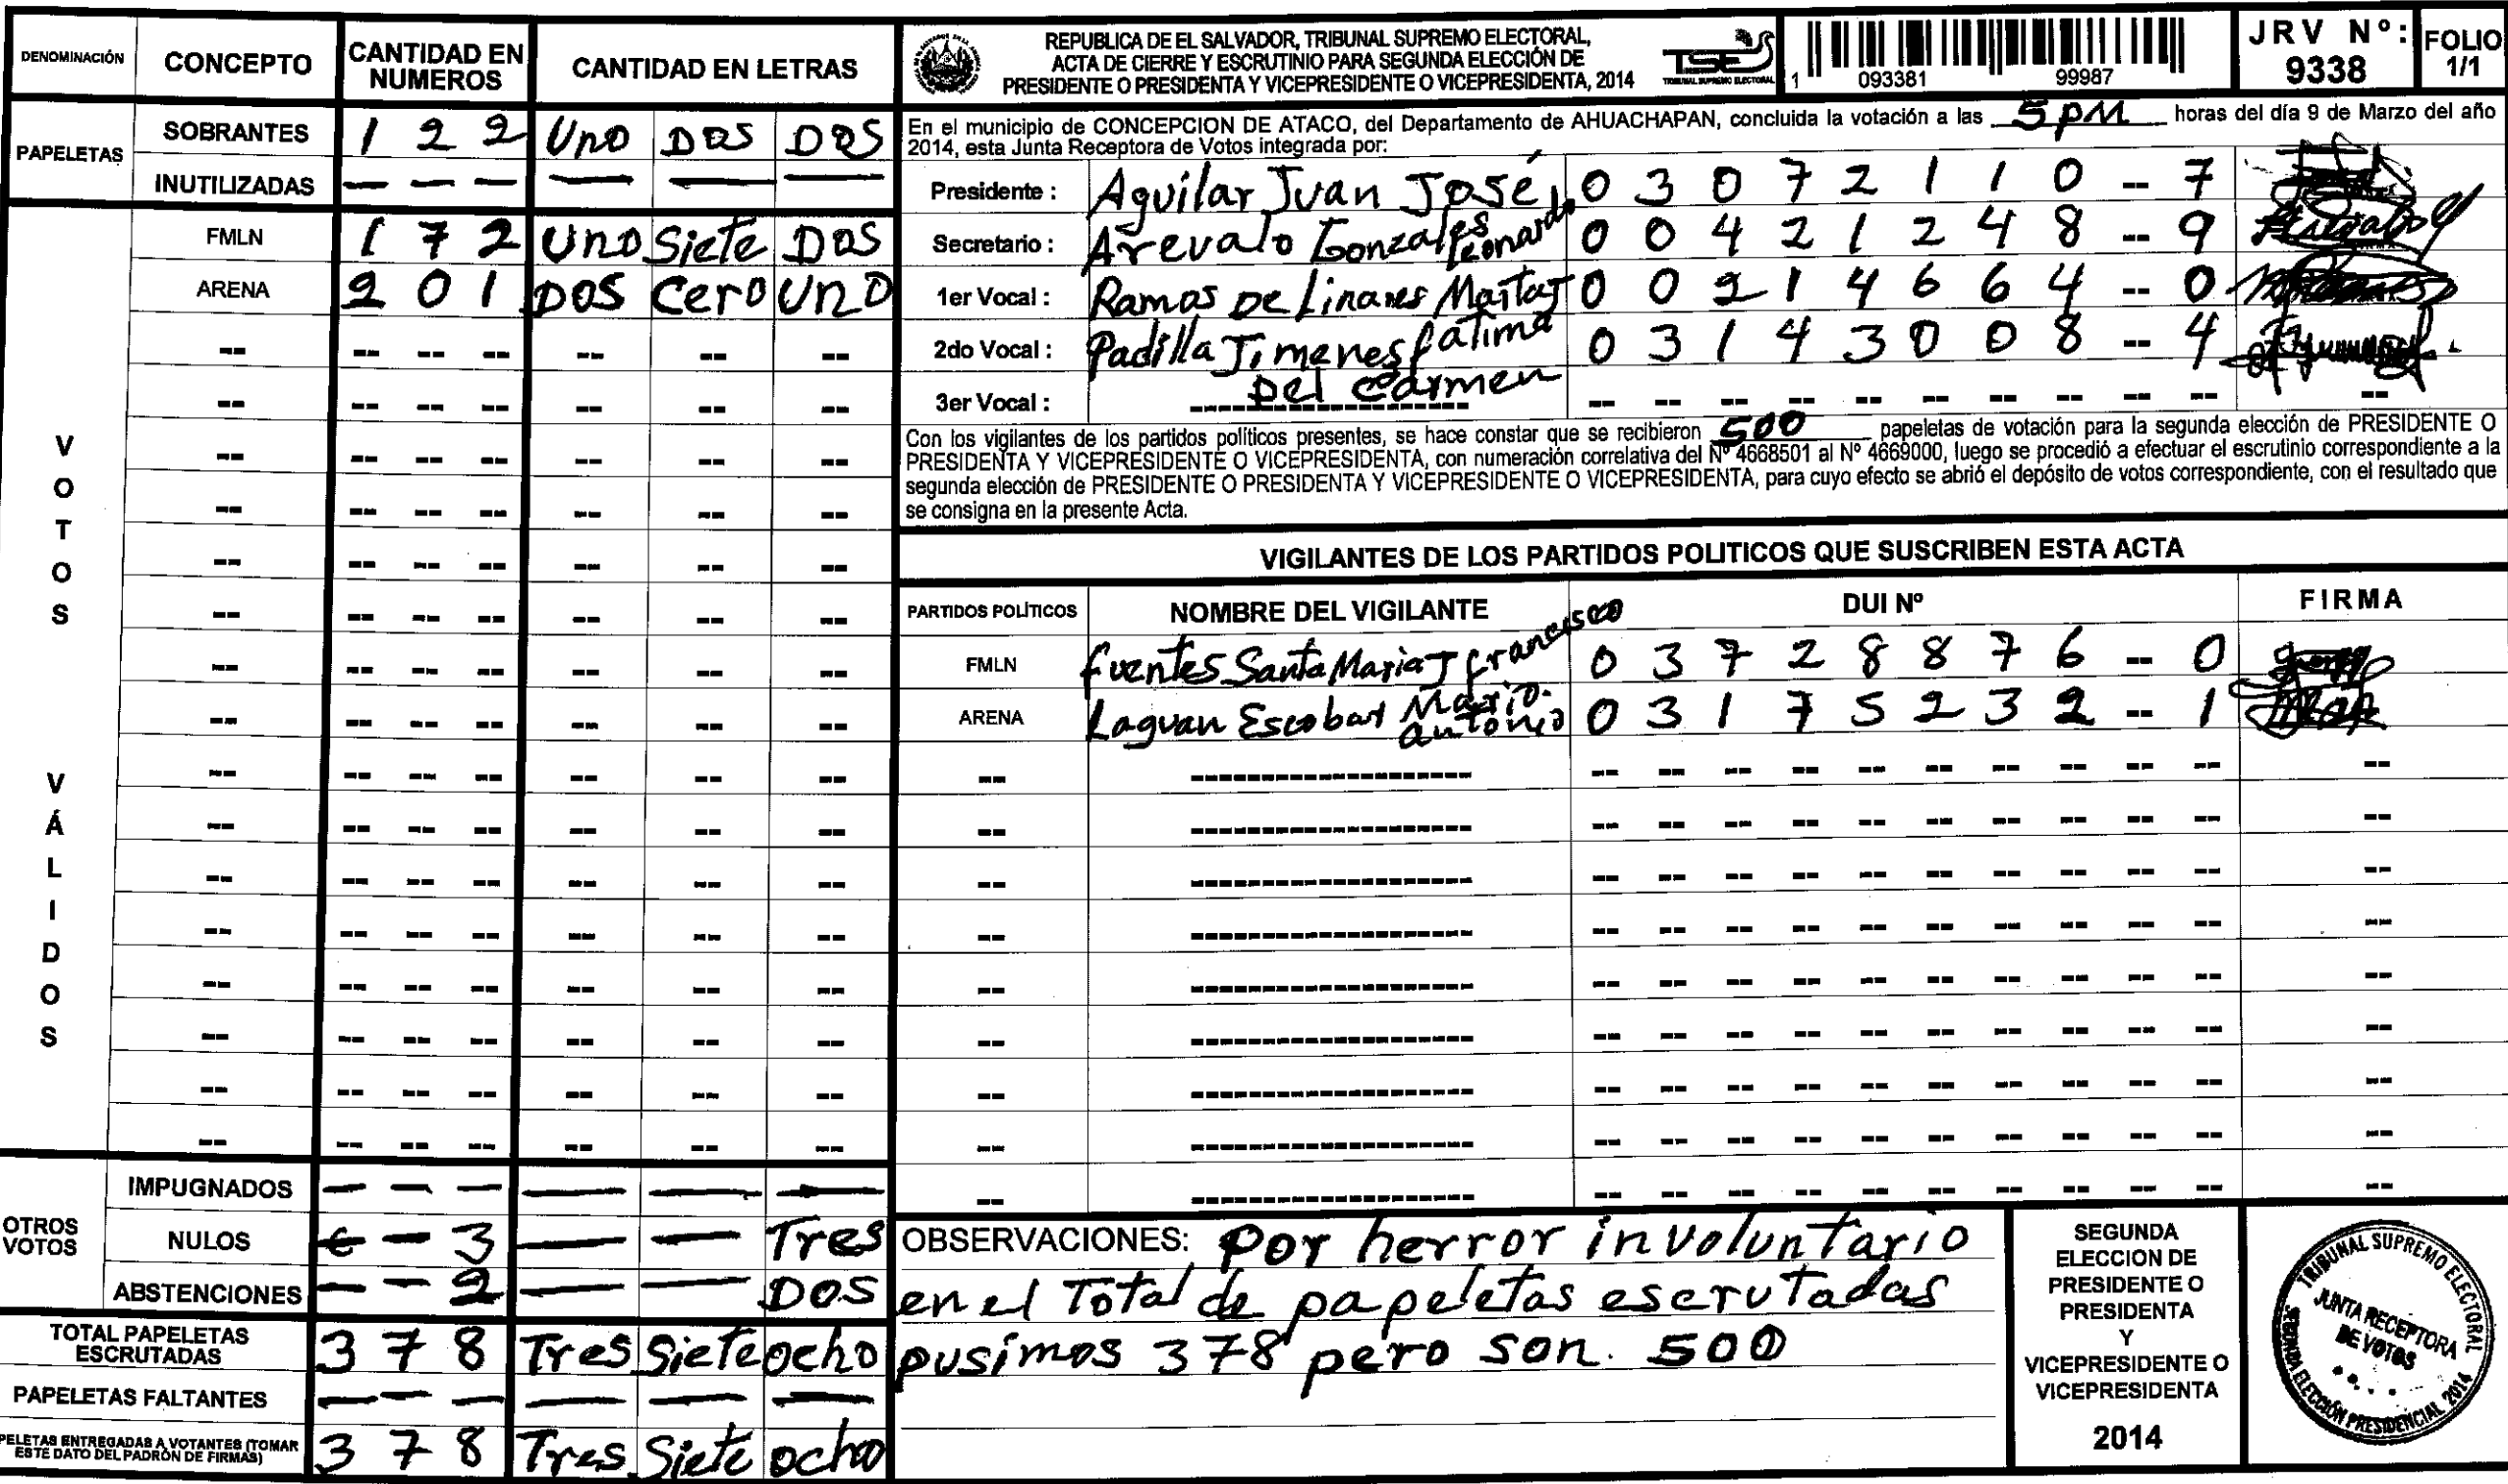 DENOMINACIÓN CONCEPTO CANTIDAD EN NUMEROS CANTIDAD EN LETRAS
PAPELETAS
SOBRANTES 1 2 2 Uno Dos Dos
INUTILIZADAS — — — — — —
VOTOS VÁLIDOS
FMLN 1 7 2 Uno Siete Dos
ARENA 2 0 1 Dos Cero Uno
OTROS VOTOS
IMPUGNADOS — — — — — —
NULOS — 3 — — Tres
ABSTENCIONES — — 2 — — Dos
TOTAL PAPELETAS ESCRUTADAS 3 7 8 Tres Siete ocho
PAPELETAS FALTANTES — — — — — —
PELETAS ENTREGADAS A VOTANTES (TOMAR
ESTE DATO DEL PADRÓN DE FIRMAS) 3 7 8 Tres Siete ocho
REPUBLICA DE EL SALVADOR, TRIBUNAL SUPREMO ELECTORAL,
ACTA DE CIERRE Y ESCRUTINIO PARA SEGUNDA ELECCIÓN DE
PRESIDENTE O PRESIDENTA Y VICEPRESIDENTE O VICEPRESIDENTA, 2014
TSE
TRIBUNAL SUPREMO ELECTORAL
1 093381 99987
JRV Nº: 9338
FOLIO 1/1
En el municipio de CONCEPCION DE ATACO, del Departamento de AHUACHAPAN, concluida la votación a las 5 pm horas del día 9 de Marzo del año
2014, esta Junta Receptora de Votos integrada por:
Presidente : Aguilar Juan José 0 3 0 7 2 1 1 0 -- 7
Secretario : Arevalo Gonzales Leonardo 0 0 4 2 1 2 4 8 -- 9
1er Vocal : Ramos De Linares Marta J 0 0 2 1 4 6 6 4 -- 0
2do Vocal : Padilla Jimenes fatima Del Carmen 0 3 1 4 3 0 0 8 -- 4
3er Vocal :
Con los vigilantes de los partidos políticos presentes, se hace constar que se recibieron 500 papeletas de votación para la segunda elección de PRESIDENTE O
PRESIDENTA Y VICEPRESIDENTE O VICEPRESIDENTA, con numeración correlativa del Nº 4668501 al Nº 4669000, luego se procedió a efectuar el escrutinio correspondiente a la
segunda elección de PRESIDENTE O PRESIDENTA Y VICEPRESIDENTE O VICEPRESIDENTA, para cuyo efecto se abrió el depósito de votos correspondiente, con el resultado que
se consigna en la presente Acta.
VIGILANTES DE LOS PARTIDOS POLITICOS QUE SUSCRIBEN ESTA ACTA
PARTIDOS POLÍTICOS NOMBRE DEL VIGILANTE DUI Nº FIRMA
FMLN fuentes Santa Maria J francisco 0 3 7 2 8 8 7 6 -- 0
ARENA Laguan Escobar Mario Antonio 0 3 1 7 5 2 3 2 -- 1
OBSERVACIONES: Por herror involuntario
en el Total de papeletas escrutadas
pusimos 378 pero son. 500
SEGUNDA
ELECCION DE
PRESIDENTE O
PRESIDENTA
Y
VICEPRESIDENTE O
VICEPRESIDENTA
2014
TRIBUNAL SUPREMO ELECTORAL
JUNTA RECEPTORA
DE VOTOS
SEGUNDA ELECCIÓN PRESIDENCIAL 2014